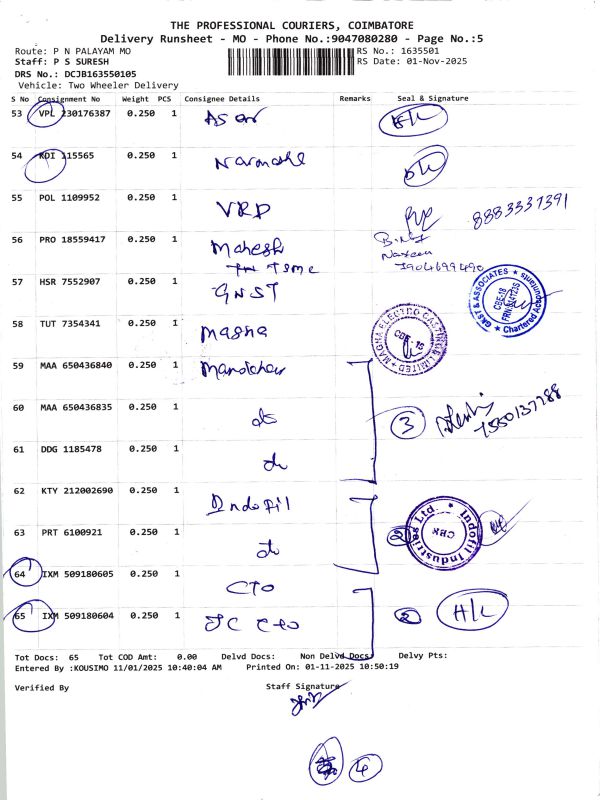 THE PROFESSIONAL COURIERS, COIMBATORE
Delivery Runsheet - MO - Phone No.:9047080280 - Page No.:5
Route: P N PALAYAM MO
RS No.: 1635501
Staff: P S SURESH
RS Date: 01-Nov-2025
DRS No.: DCJB163550105
Vehicle: Two Wheeler Delivery
S No Consignment No Weight PCS Consignee Details Remarks Seal & Signature
53 VPL 230176387 0.250 1
54 KDI 115565 0.250 1
55 POL 1109952 0.250 1 VRP 8883337391
56 PRO 18559417 0.250 1 Mahesh
57 HSR 7552907 0.250 1 GNST
GRST & ASSOCIATES
CBE-18
Chartered Accountants
58 TUT 7354341 0.250 1 Magna
MAGNA ELECTRO CASTINGS LIMITED
CBE-18
59 MAA 650436840 0.250 1
60 MAA 650436835 0.250 1 do 3
61 DDG 1185478 0.250 1 do
62 KTY 212002690 0.250 1 Indofil
Indofil Industries Ltd.
CBE
63 PRT 6100921 0.250 1 do 2
64 IXM 509180605 0.250 1 CTO
65 IXM 509180604 0.250 1 2 H/L
Tot Docs: 65 Tot COD Amt: 0.00 Delvd Docs: Non Delvd Docs: Delvy Pts:
Entered By :KOUSIMO 11/01/2025 10:40:04 AM Printed On: 01-11-2025 10:50:19
Verified By Staff Signature
4